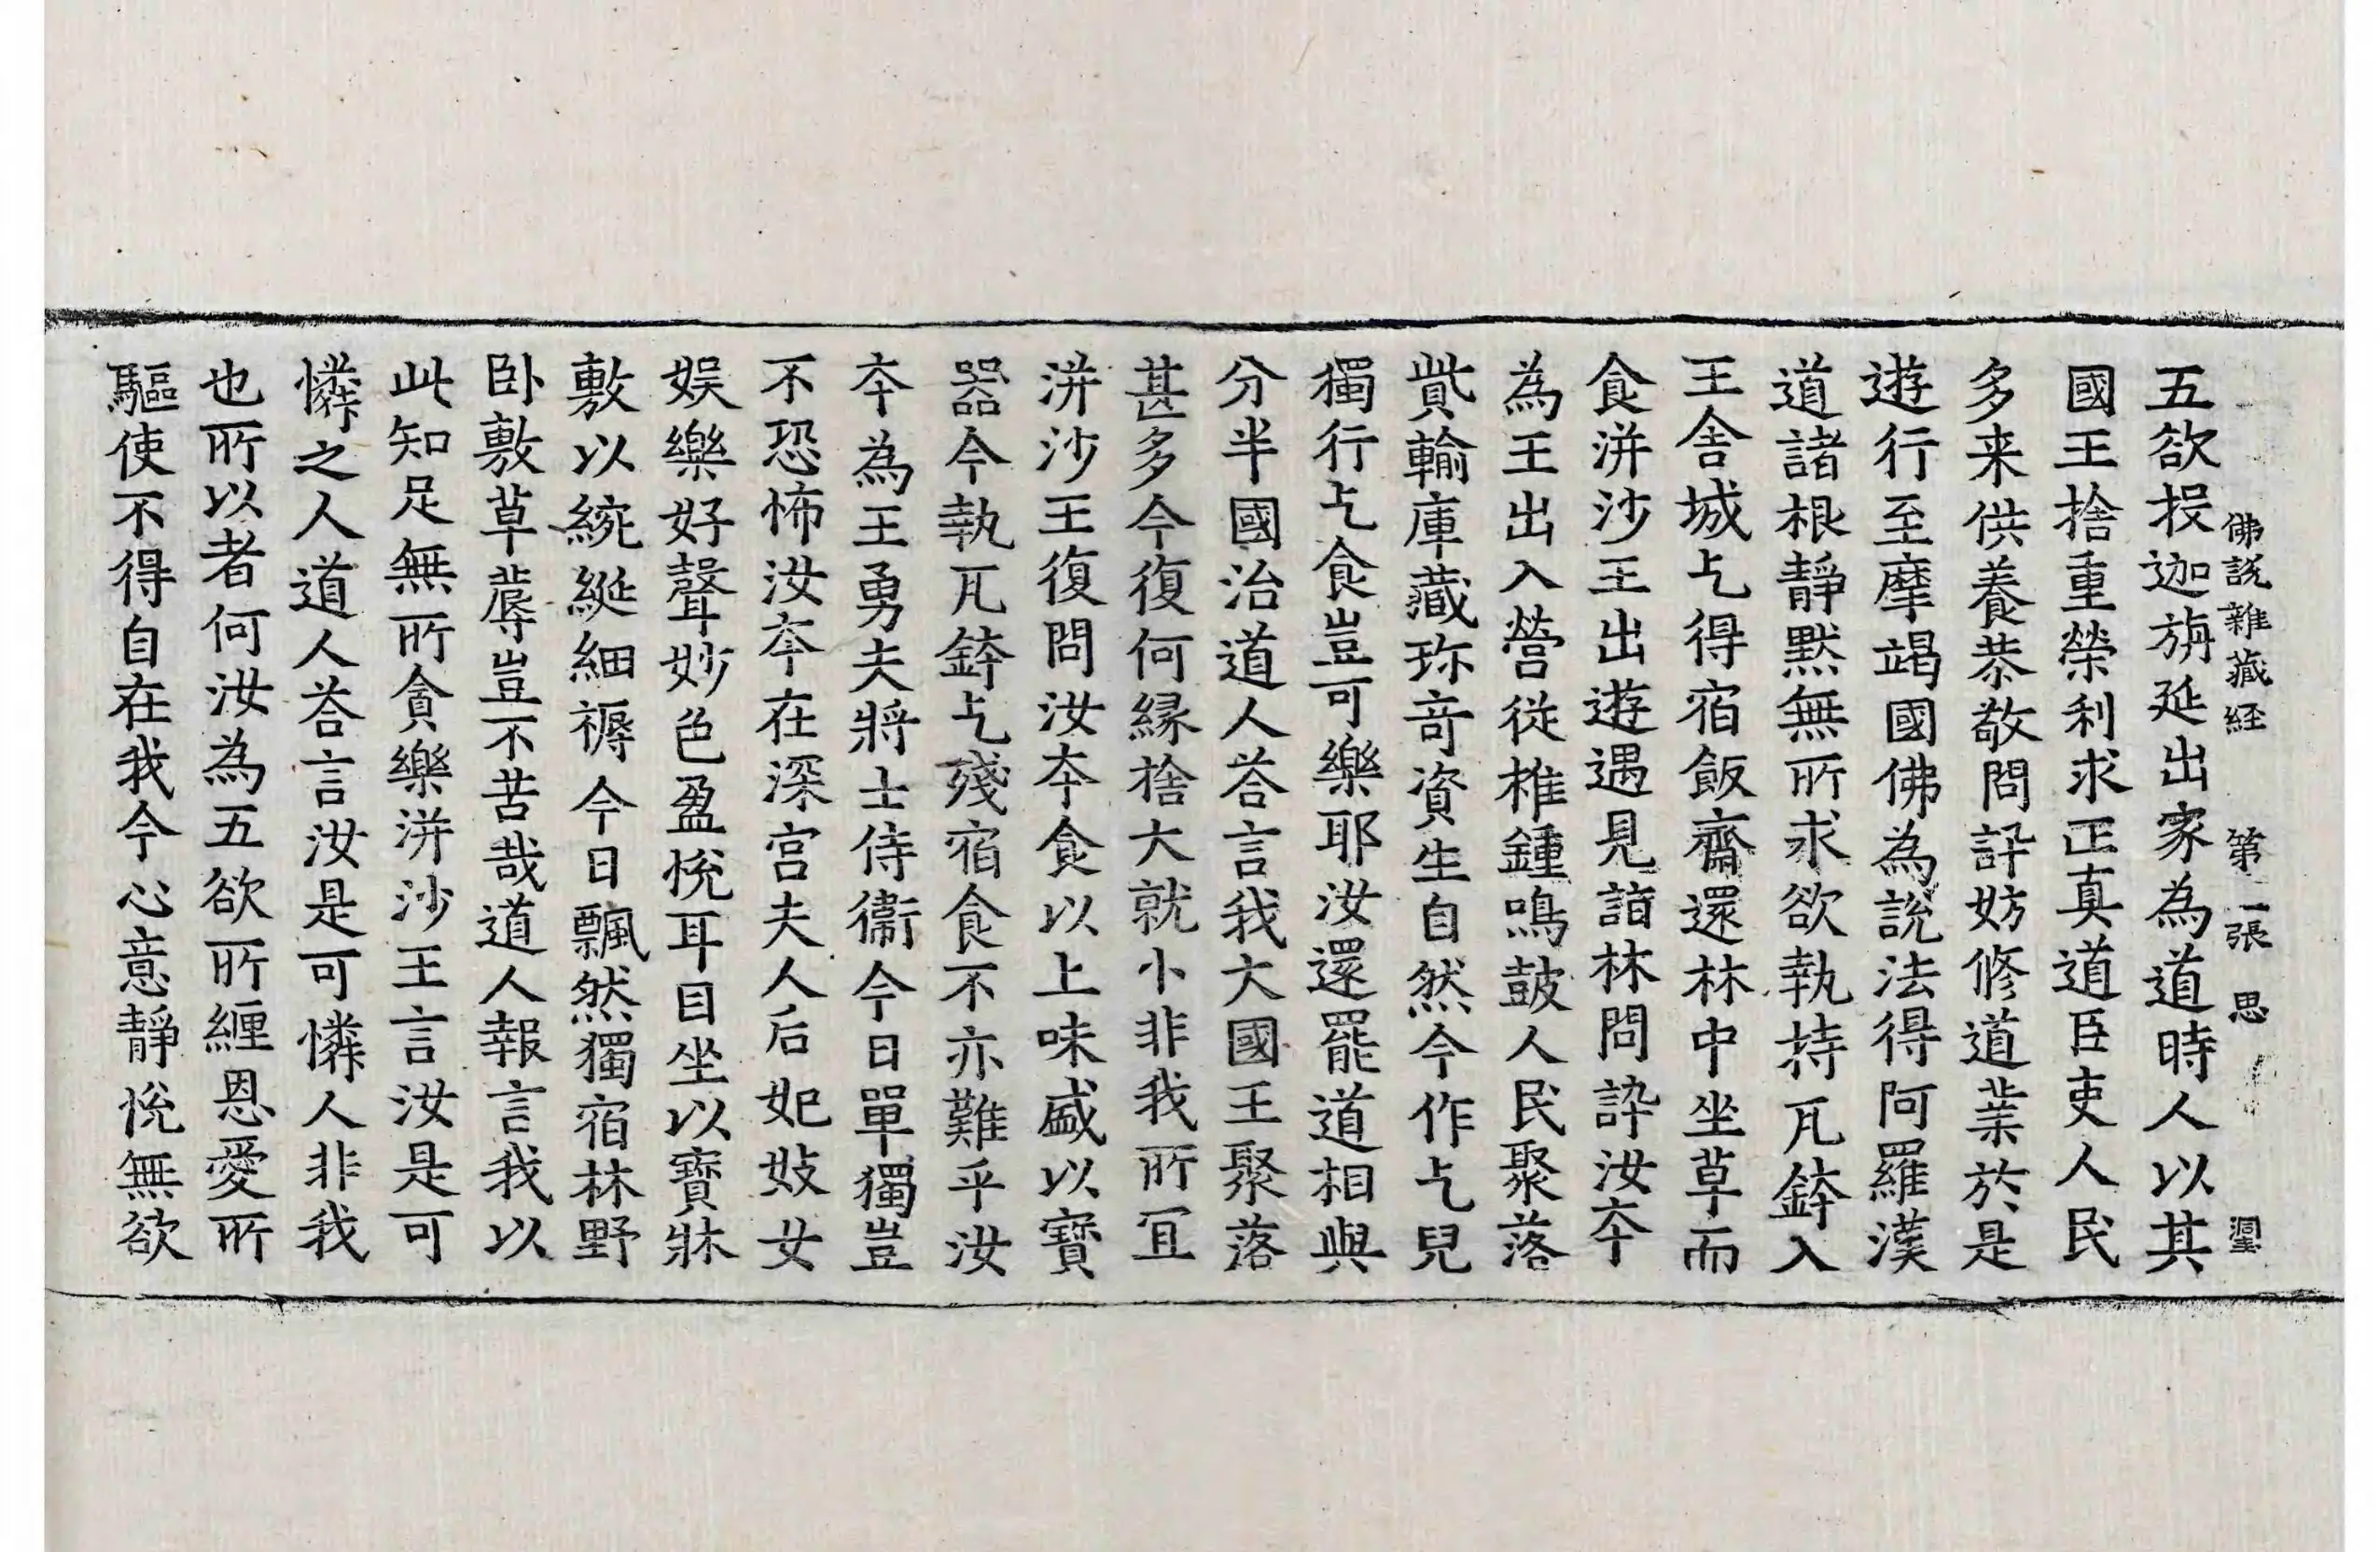 佛說雜藏經　第二張　思
五欲投迦旃延出家為道時人以其
國王捨重榮利求正真道臣吏人民
多来供養恭敬問訊妨修道業於是
遊行至摩竭國佛為說法得阿羅漢
道諸根静默無所求欲執持瓦鉢入
王舍城乞得宿飯齋還林中坐草而
食洴沙王出遊遇見詣林問訊汝夲
為王出入營從椎鍾鳴鼓人民聚落
貲輸庫藏珎竒資生自然今作乞兒
獨行乞食豈可樂耶汝還罷道相與
分半國治道人荅言我大國王聚落
甚多今復何縁捨大就小非我所冝
洴沙王復問汝夲食以上味盛以寶
器今執瓦鉢乞殘宿食不亦難乎汝
夲為王勇夫將士侍衛今日單獨豈
不恐怖汝夲在深宫夫人后妃妓女
娱樂好聲妙色盈恱耳目坐以寶牀
敷以綩綖細褥今日飄然獨宿林野
卧敷草蓐豈不苦哉道人報言我以
此知足無所貪樂洴沙王言汝是可
憐之人道人荅言汝是可憐人非我
也所以者何汝為五欲所纏恩愛所
驅使不得自在我今心意静恱無欲